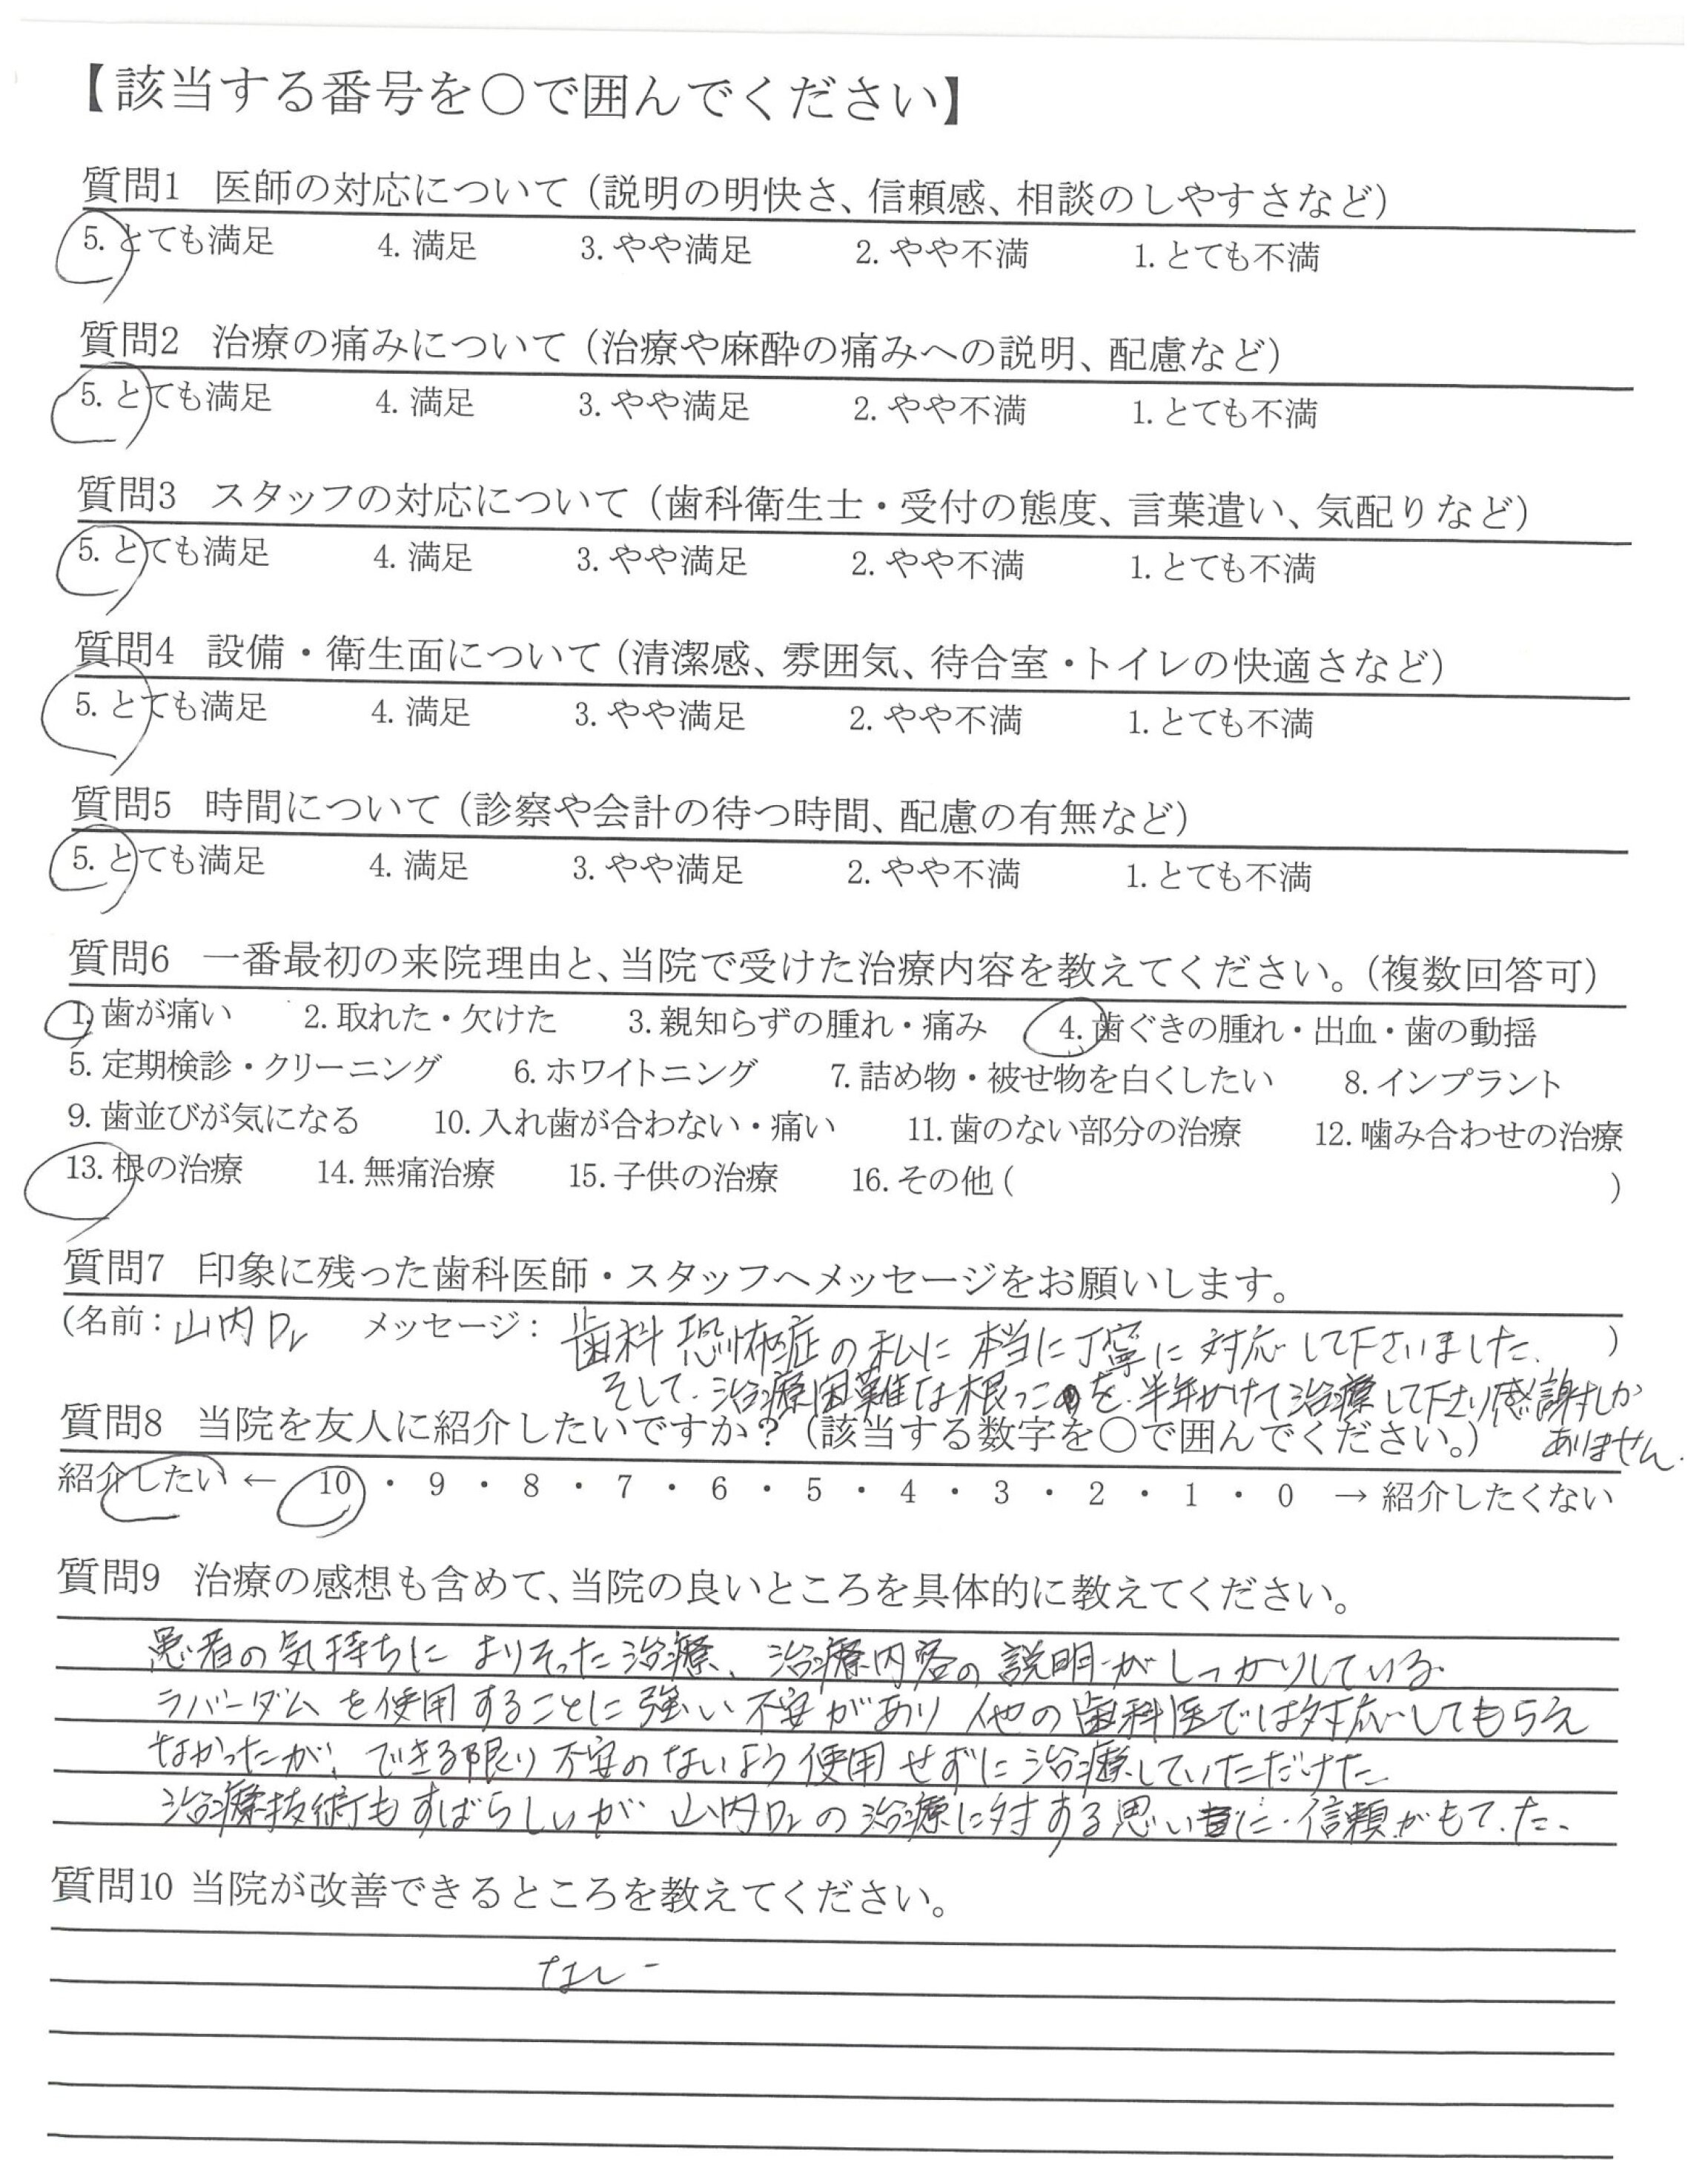 【該当する番号を〇で囲んでください】
質問1 医師の対応について（説明の明快さ、信頼感、相談のしやすさなど）
5. とても満足 4. 満足 3. やや満足 2. やや不満 1. とても不満
質問2 治療の痛みについて（治療や麻酔の痛みへの説明、配慮など）
5. とても満足 4. 満足 3. やや満足 2. やや不満 1. とても不満
質問3 スタッフの対応について（歯科衛生士・受付の態度、言葉遣い、気配りなど）
5. とても満足 4. 満足 3. やや満足 2. やや不満 1. とても不満
質問4 設備・衛生面について（清潔感、雰囲気、待合室・トイレの快適さなど）
5. とても満足 4. 満足 3. やや満足 2. やや不満 1. とても不満
質問5 時間について（診察や会計の待つ時間、配慮の有無など）
5. とても満足 4. 満足 3. やや満足 2. やや不満 1. とても不満
質問6 一番最初の来院理由と、当院で受けた治療内容を教えてください。（複数回答可）
1. 歯が痛い 2. 取れた・欠けた 3. 親知らずの腫れ・痛み 4. 歯ぐきの腫れ・出血・歯の動揺
5. 定期検診・クリーニング 6. ホワイトニング 7. 詰め物・被せ物を白くしたい 8. インプラント
9. 歯並びが気になる 10. 入れ歯が合わない・痛い 11. 歯のない部分の治療 12. 噛み合わせの治療
13. 根の治療 14. 無痛治療 15. 子供の治療 16. その他（ ）
質問7 印象に残った歯科医師・スタッフへメッセージをお願いします。
（名前：山内Dr メッセージ：歯科恐怖症の私に本当に丁寧に対応して下さいました。）
そして、治療困難な根っこを、半年かけて治療して下さり感謝しか
ありません。
質問8 当院を友人に紹介したいですか？（該当する数字を〇で囲んでください。）
紹介したい ← 10 ・ 9 ・ 8 ・ 7 ・ 6 ・ 5 ・ 4 ・ 3 ・ 2 ・ 1 ・ 0 → 紹介したくない
質問9 治療の感想も含めて、当院の良いところを具体的に教えてください。
患者の気持ちによりそった治療、治療内容の説明がしっかりしている。
ラバーダムを使用することに強い不安があり他の歯科医では対応してもらえ
なかったが、できる限り不安のないよう使用せずに治療していただけた
治療技術もすばらしいが 山内Drの治療に対する思いに、信頼がもてた。
質問10 当院が改善できるところを教えてください。
なし